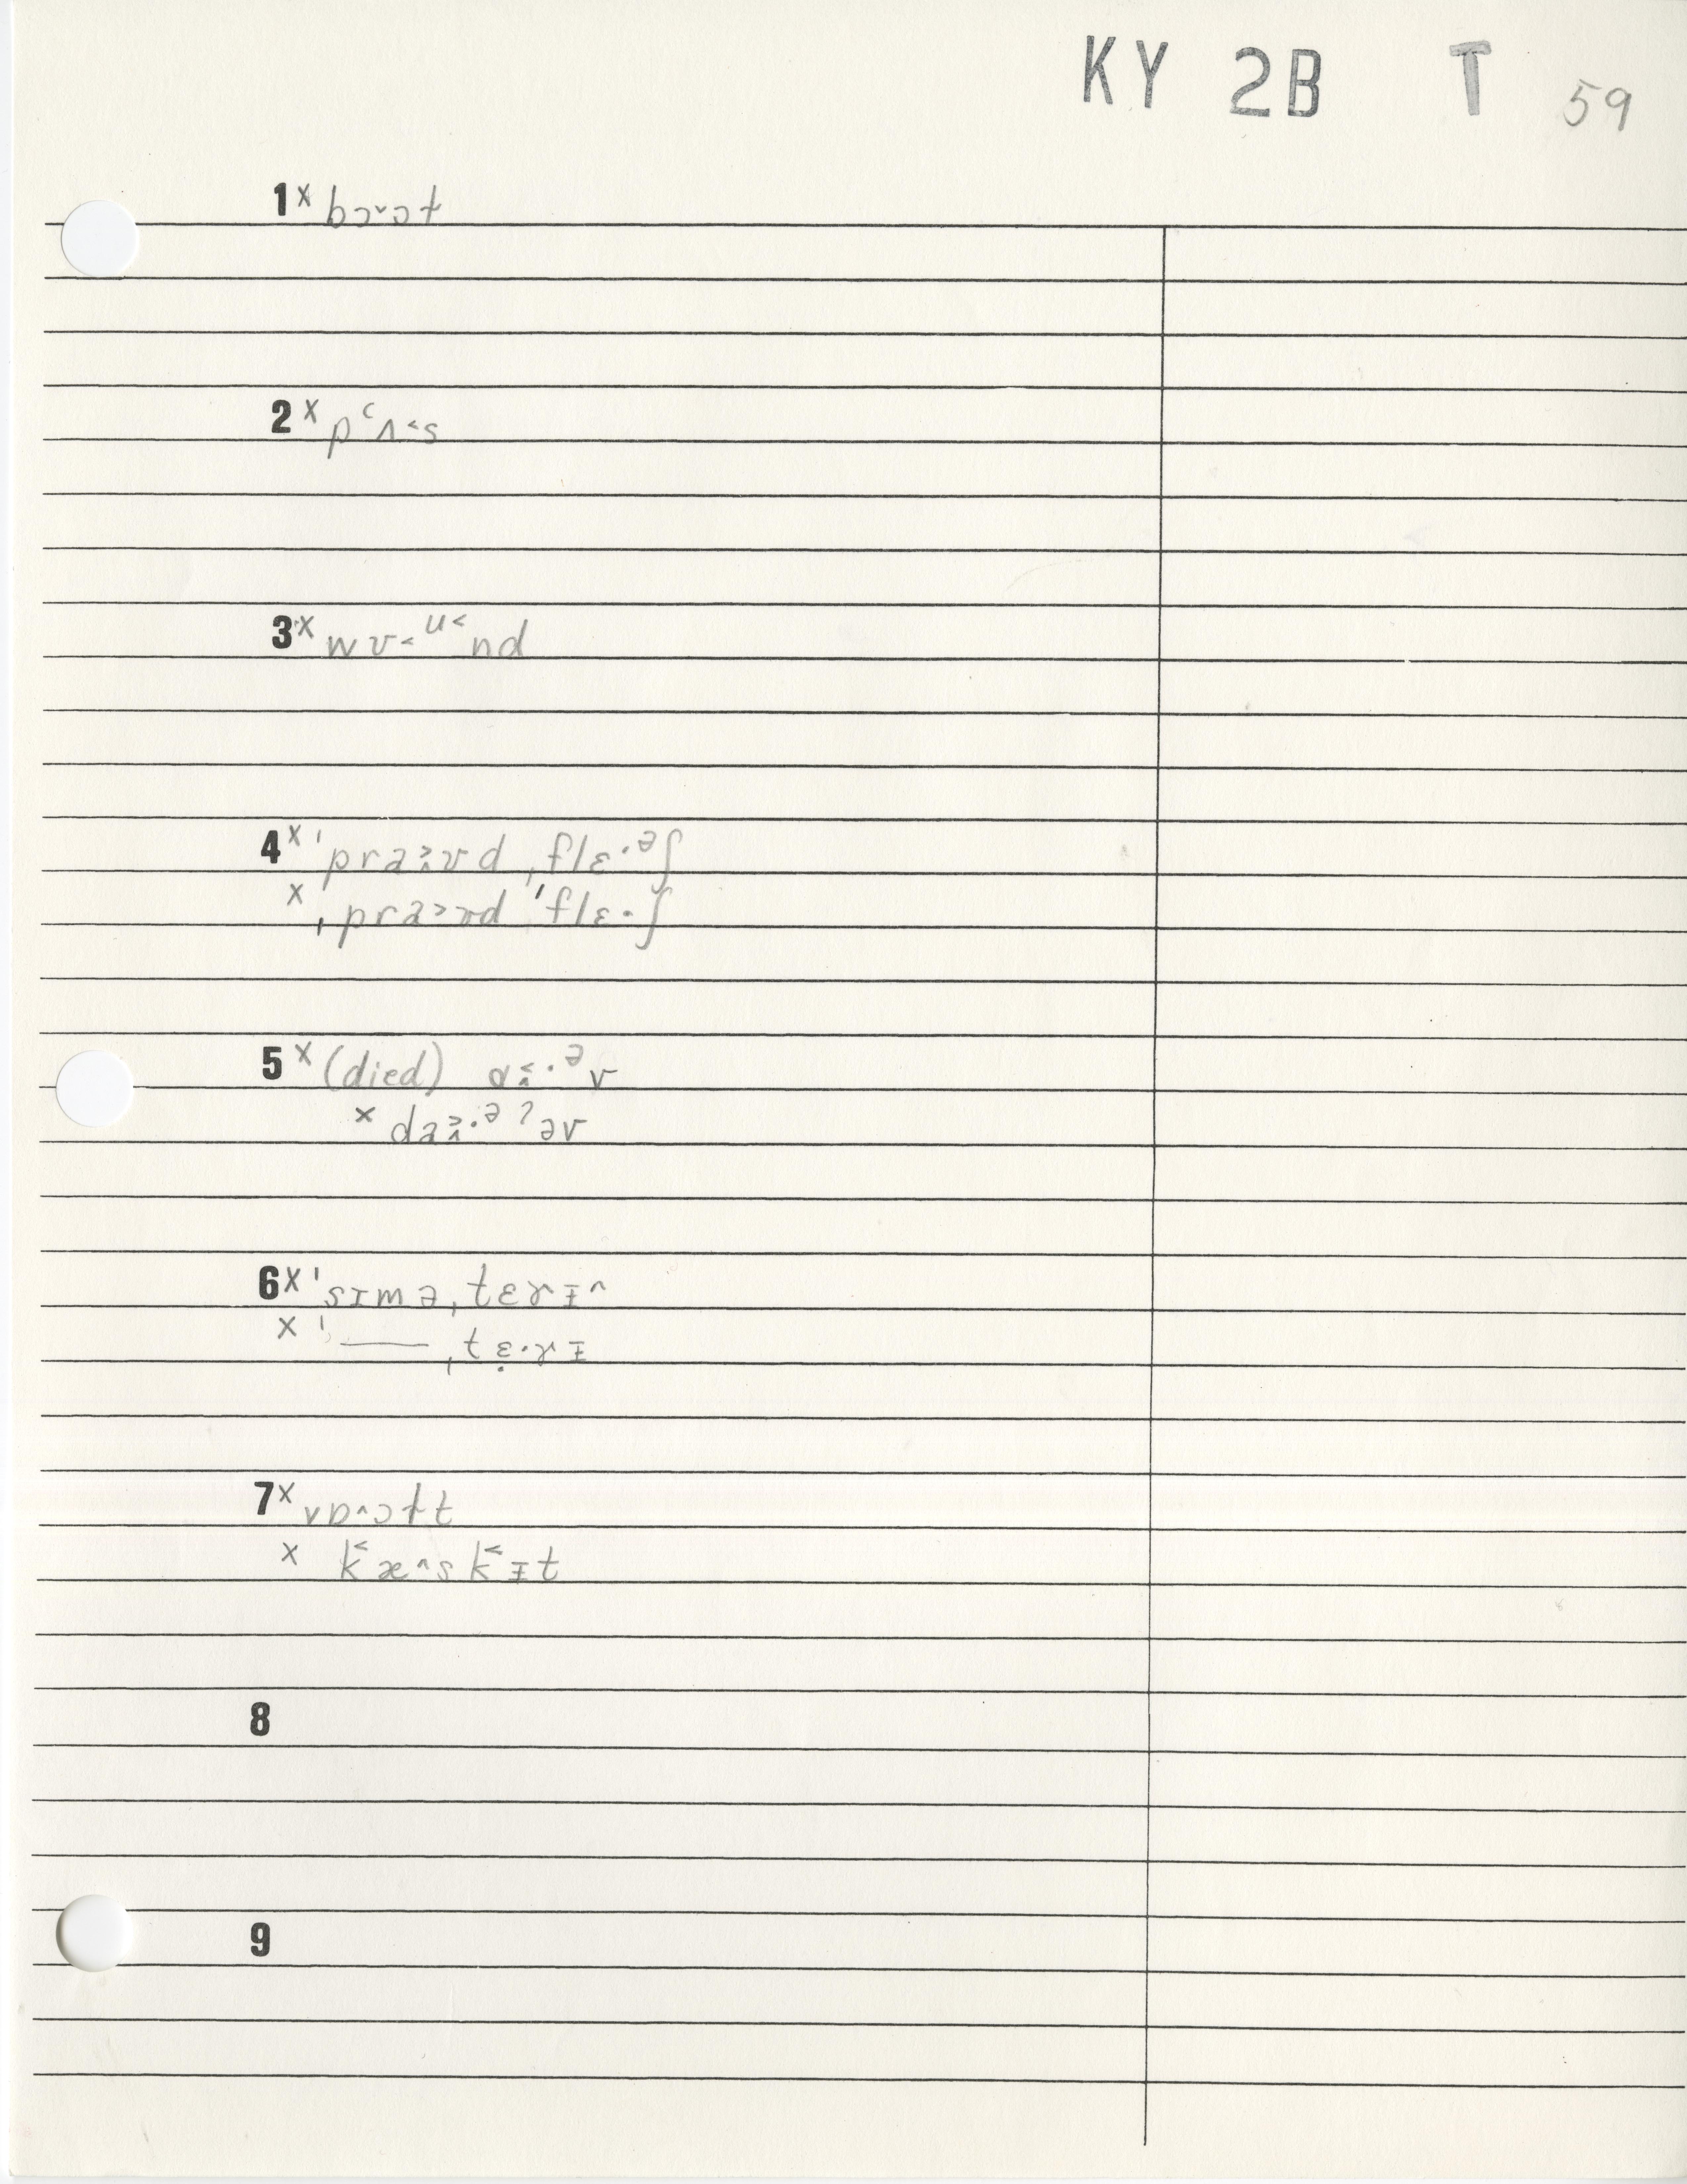 KY 2B T 59
1 x bɔ˅ɔɫ
2 x pʿʌ˂s
3 x wʊ˂ᵘ˂nd
4 x ˈpraʊd ˌflɛ·ᵊʃ
x ˌpra˃ʊd ˈflɛ·ʃ
5 x (died) ɑ·ᵊv
x da·ᵊʔəv
6 x ˈsɪmə ˌtɛrɪ^
x ˈ— ˌtɛ·rɪ
7 x vɒ^ɔɫt
x k̬æ^sk̬ɪt
8
9